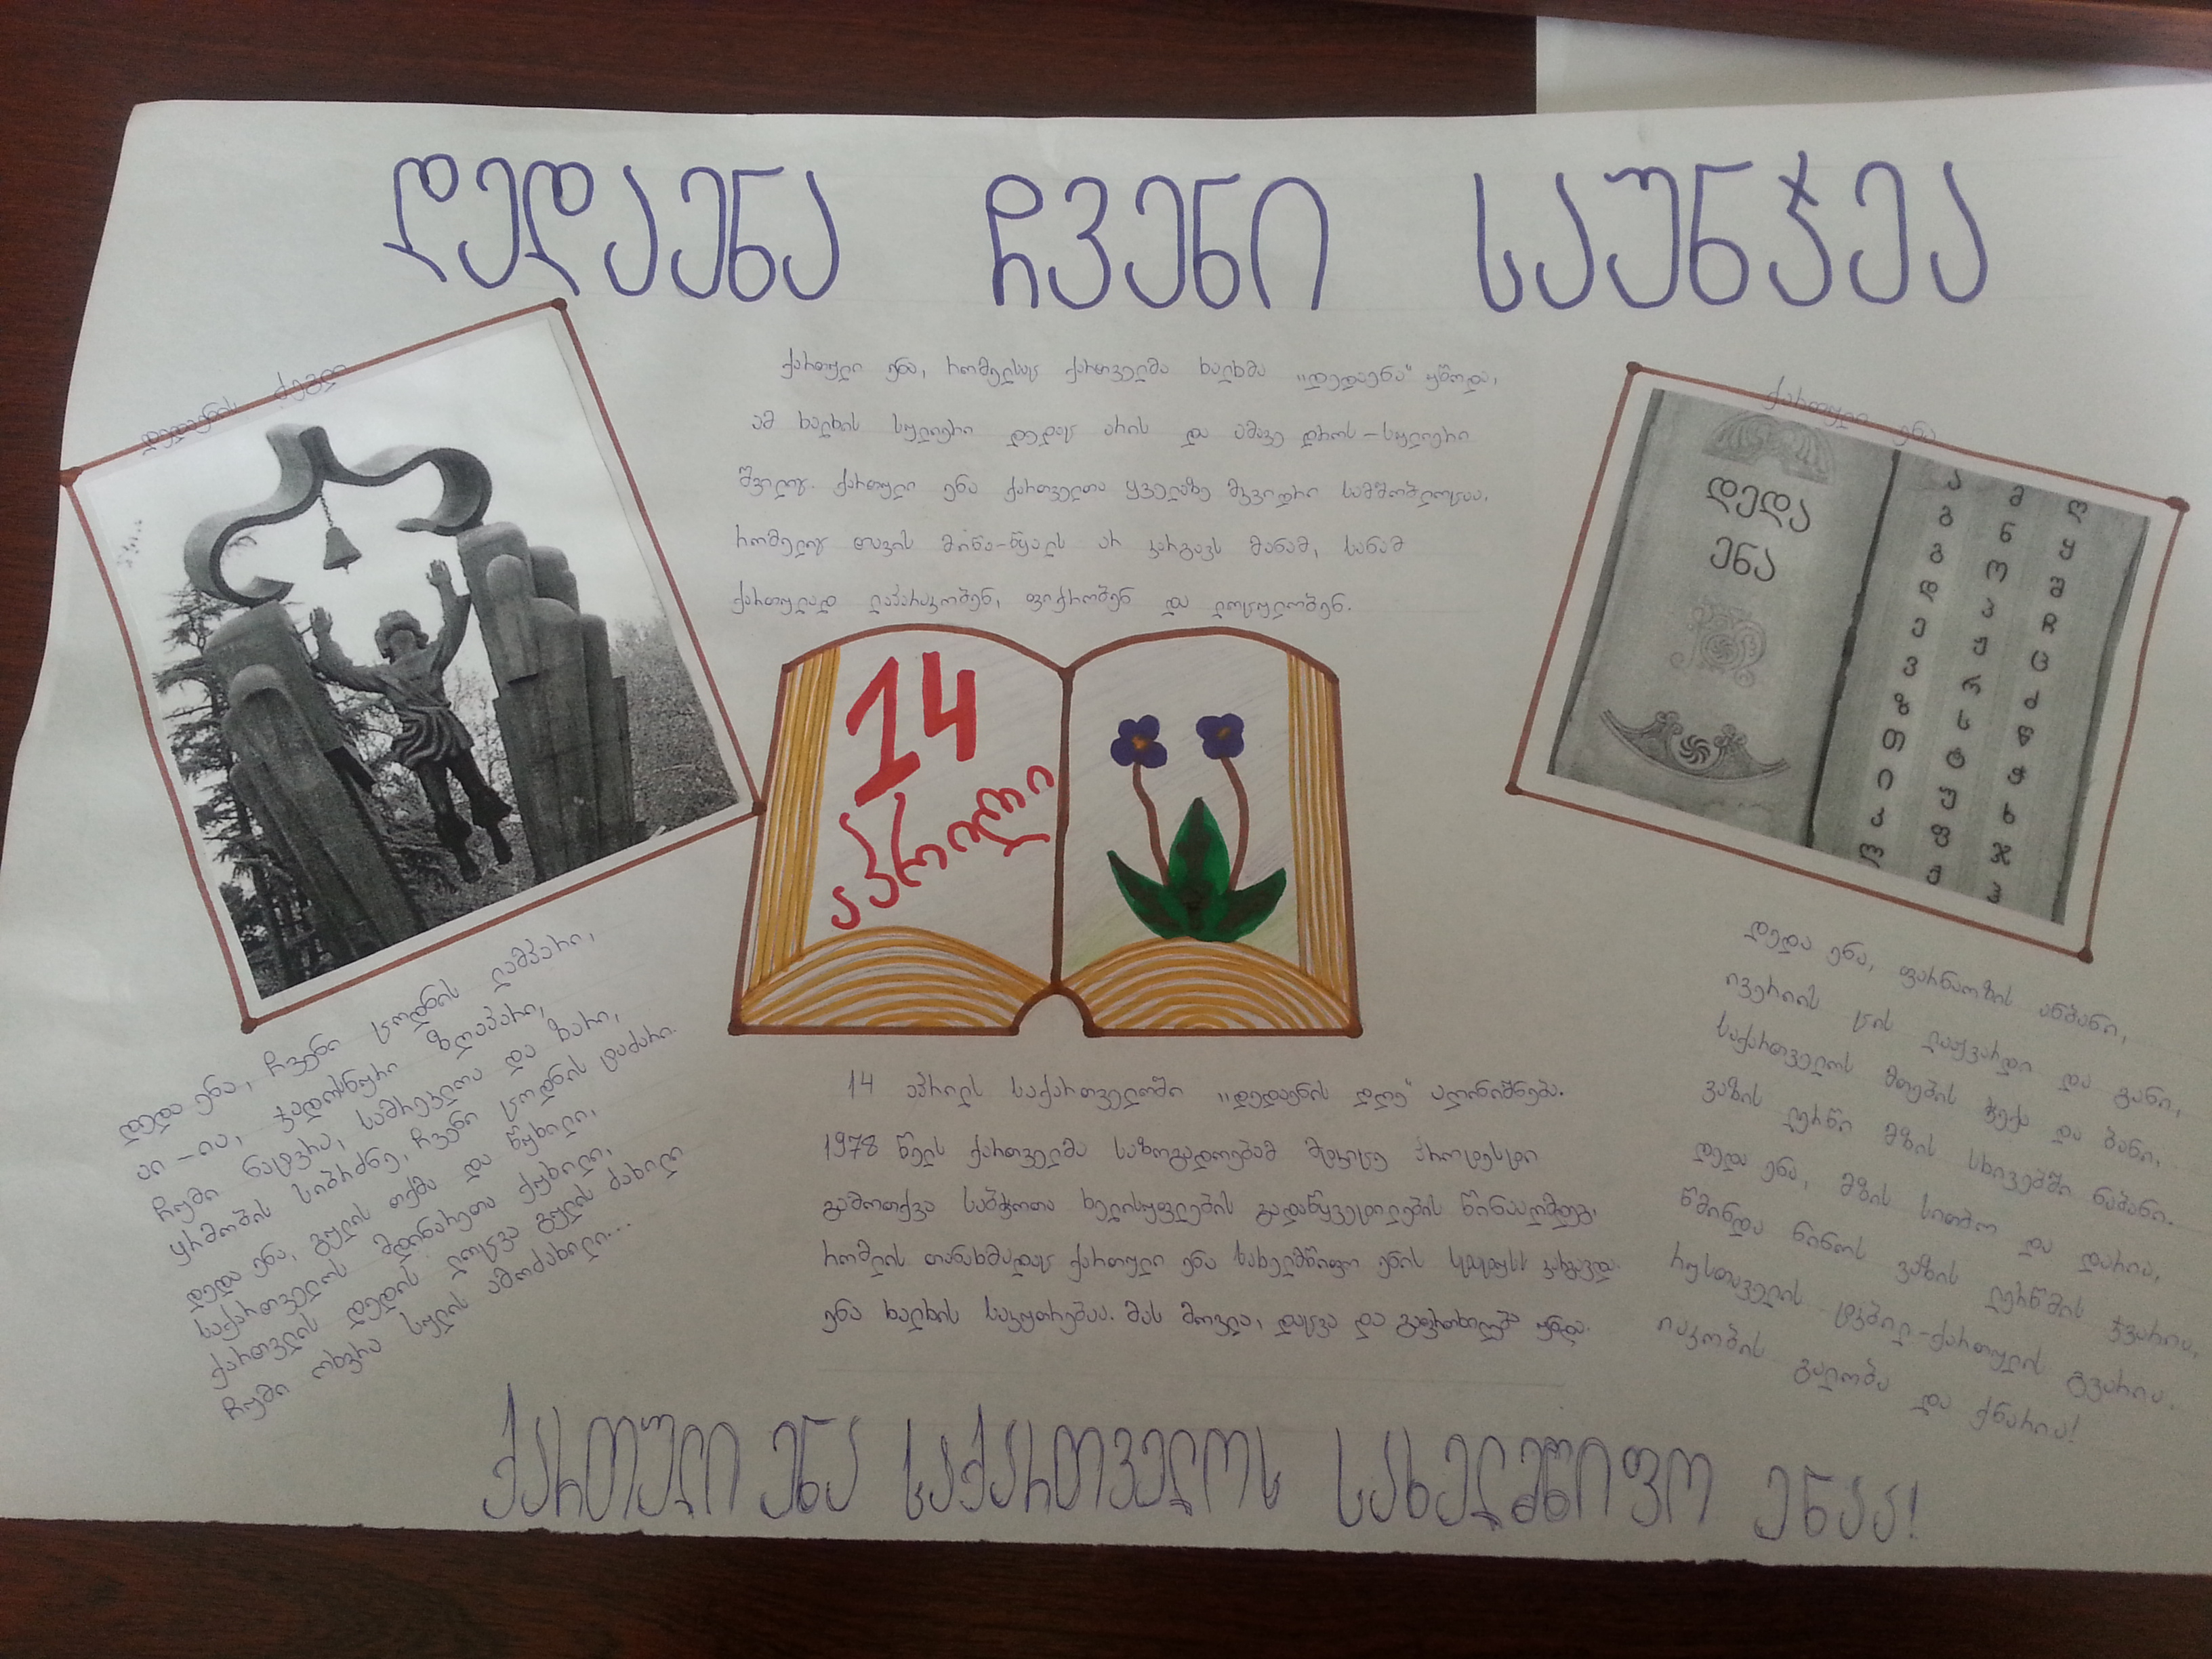 დედაენა ჩვენი საუნჯეა
დედაენის ძეგლი
ქართული ენა, რომელსაც ქართველმა ხალხმა „დედაენა" უწოდა,
ამ ხალხის სულიერი დედაც არის და ამავე დროს - სულიერი
შვილიც. ქართული ენა ქართველთა ყველაზე მკვიდრი სამშობლოცაა,
რომელიც თავის მიწა-წყალს არ კარგავს მანამ, სანამ
ქართულად ლაპარაკობენ, ფიქრობენ და ლოცულობენ.
ქართული ენა
დედა
ენა
ა
ბ
გ
დ
ე
ვ
ზ
თ
ი
კ
ლ
მ
ნ
ო
პ
ჟ
რ
ს
ტ
უ
ფ
ქ
ღ
ყ
შ
ჩ
ც
ძ
წ
ჭ
ხ
ჯ
ჰ
14
აპრილი
დედა ენა, ჩვენი ცოდნის ლამპარი,
აი - ია, ჯადოსნური ზღაპარი,
ჩუმი ნატვრა, სამრეკლო და ზარი,
ყრმობის სიბრძნე, ჩვენი ცოდნის ტაძარი.
დედა ენა, გულის თქმა და წუხილი,
საქართველოს მდინარეთა ქუხილი,
ქართვლის დედის ლოცვა გულის ძახილი
ჩუმი ოხვრა სულის ამოძახილი...
14 აპრილს საქართველოში „დედაენის დღე" აღინიშნება.
1978 წელს ქართველმა საზოგადოებამ მტკიცე პროტესტი
გამოთქვა საბჭოთა ხელისუფლების გადაწყვეტილების წინააღმდეგ,
რომლის თანახმადაც ქართული ენა სახელმწიფო ენის სტატუსს კარგავდა.
ენა ხალხის საკუთრებაა. მას მოვლა, დაცვა და გაფრთხილება უნდა.
დედა ენა, ფარნაოზის ანბანი,
ივერიის ცის ლაჟვარდი და განი,
საქართველოს მთების ჭექა და ბანი,
ვაზის ლერწი მზის სხივებში ნაბანი.
დედა ენა, მზის სითბო და დარია,
წმინდა ნინოს ვაზის ლერწმის ჯვარია,
რუსთაველის ტკბილ-ქართულის გვარია.
იაკობის გალობა და ქნარია!
ქართული ენა საქართველოს სახელმწიფო ენაა!